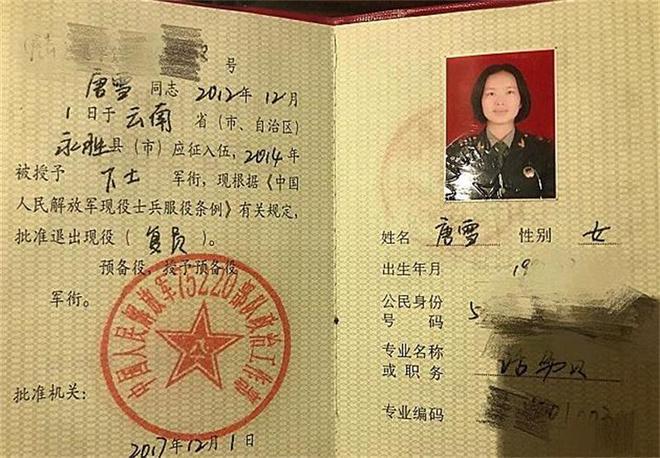 号
唐雪同志2012年12月
1日于云南省（市、自治区）
永胜县（市）应征入伍，2014年
被授予下士军衔，现根据《中国
人民解放军现役士兵服役条例》有关规定，
批准退出现役（复员）。
预备役，授予预备役
军衔。
中国人民解放军75220部队政治工作部
批准机关：
2017年12月1日
姓名 唐雪 性别 女
出生年月 19
公民身份
号码 5
专业名称
或职务
专业编码